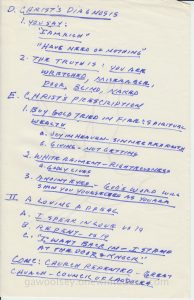 D. CHRIST'S DIAGNOSIS
1. YOU SAY:
"I AM RICH"
"HAVE NEED OF NOTHING"
2. THE TRUTH IS! YOU ARE
WRETCHED, MISERABLE,
POOR, BLIND, NAKED
E. CHRIST'S PRESCRIPTION
1. BUY GOLD TRIED IN FIRE: SPIRITUAL
WEALTH
a. JOY IN HEAVEN - SINNER REPENTETH
b. GIVING - NOT GETTING
2. WHITE RAIMENT - RIGHTEOUSNESS
a. GODLY LIVES
3. ANOINT EYES - GOD'S WORD WILL
SHOW YOU YOURSELF AS YOU ARE
II A LOVING APPEAL
A. I SPEAK IN LOVE VS 19
B. REPENT. 15 19
C. "I WANT BACK IN - I STAND
AT THE DOOR & KNOCK"
CONC: CHURCH REPENTED - GREAT
CHURCH - COUNCIL OF LAODICEA
gawoolsey